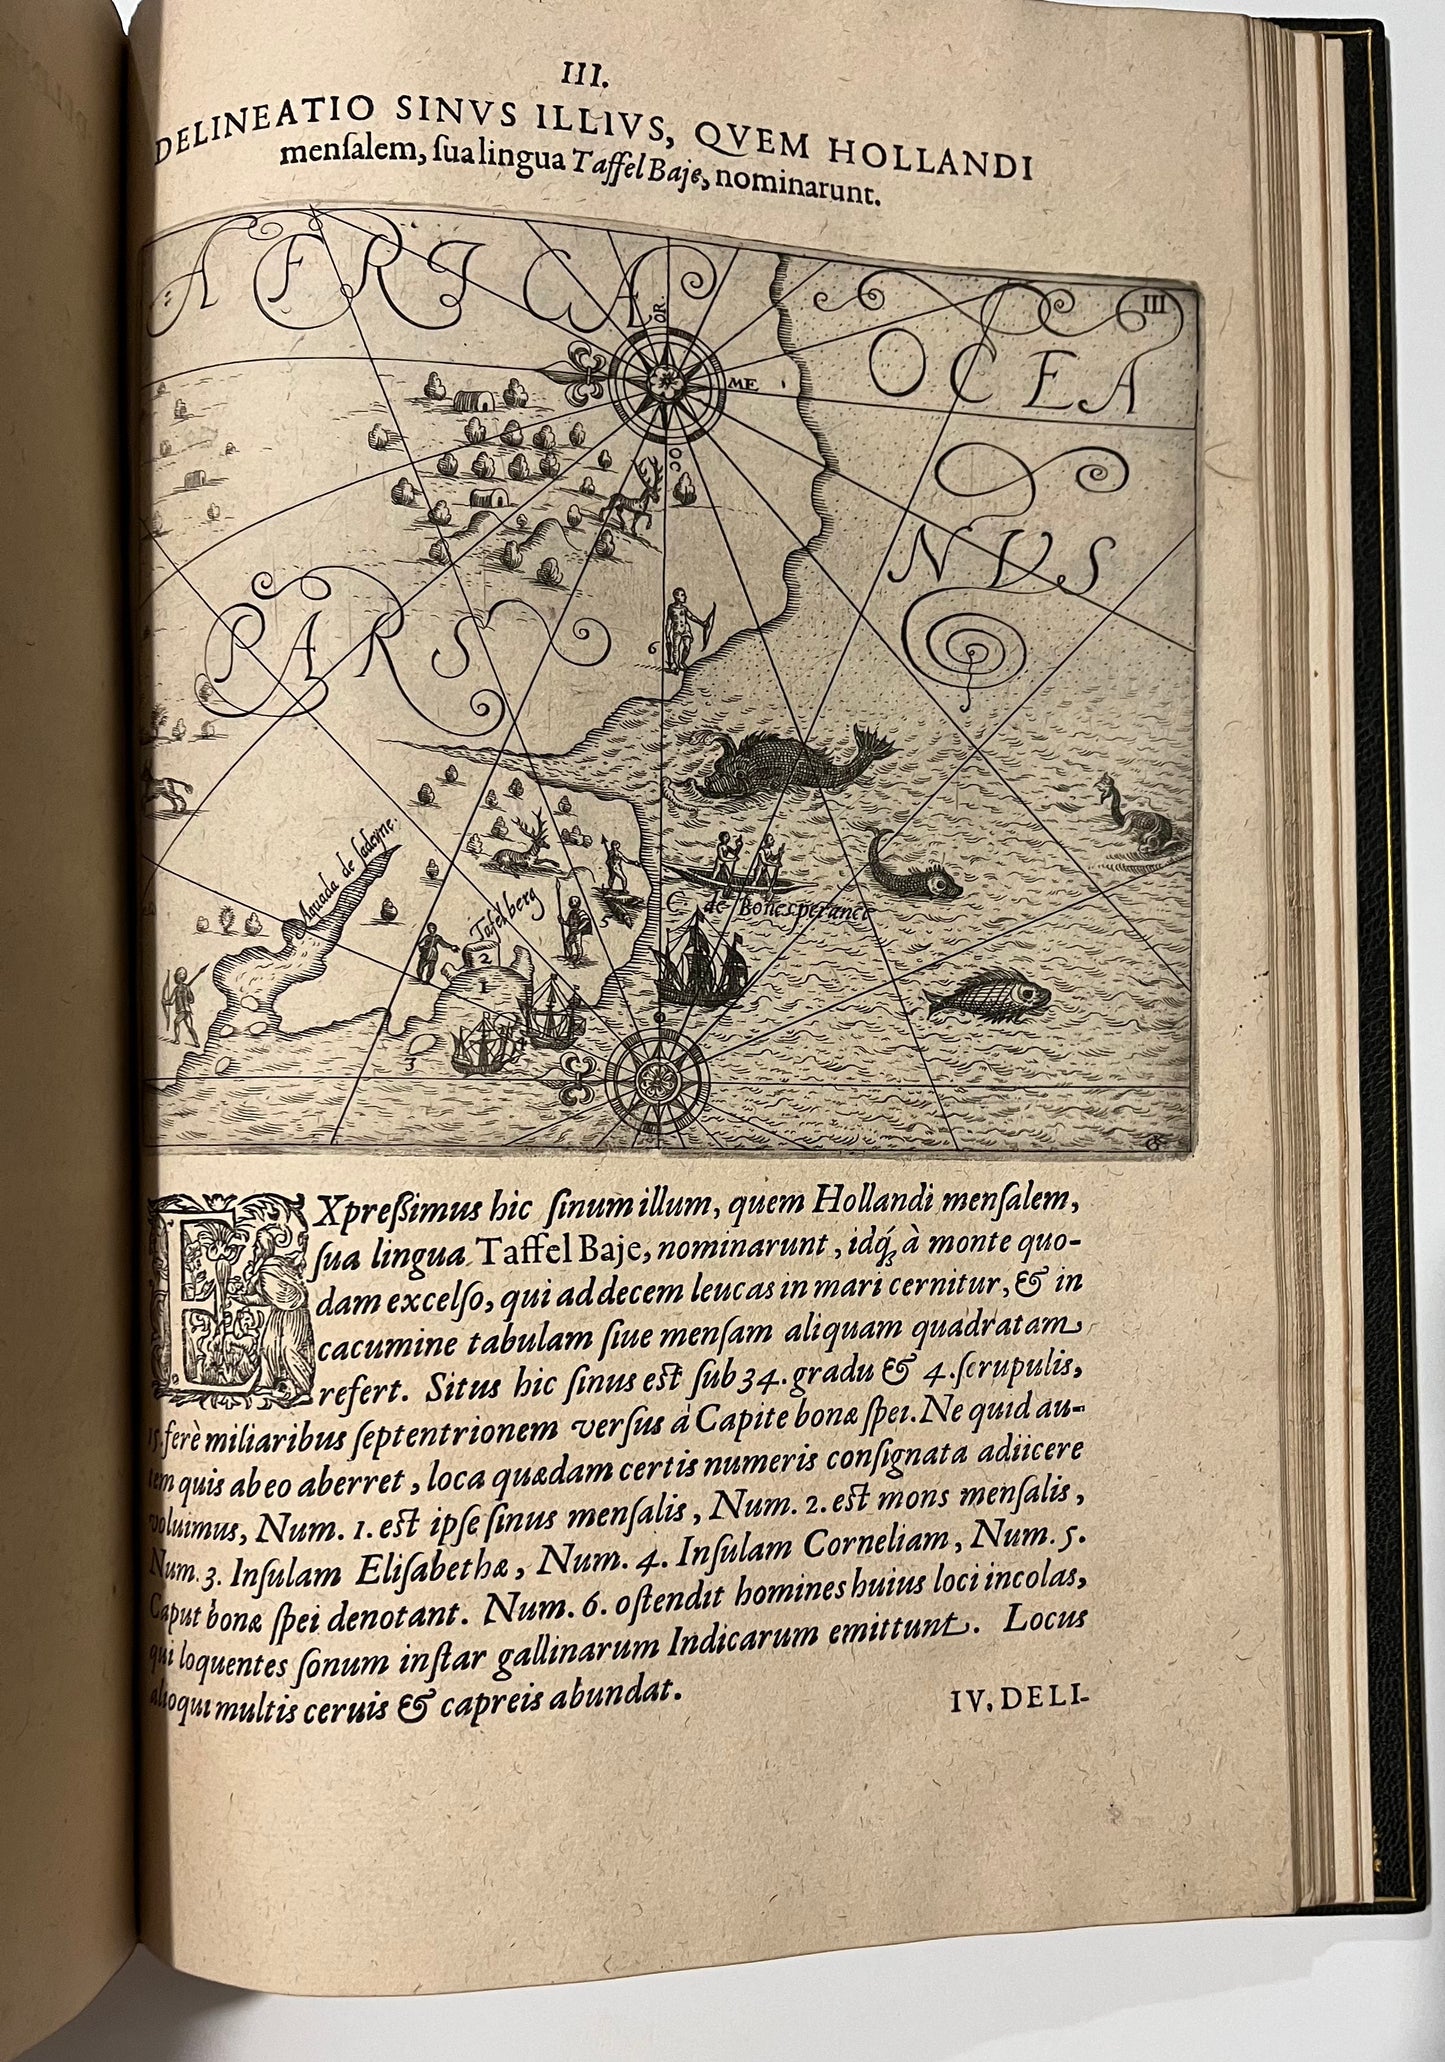 III.
DELINEATIO SINVS ILLIVS, QVEM HOLLANDI
menſalem, ſua lingua Taffel Baje, nominarunt.
AFRICÆ
OR.
III
OCEA
ME
OC
NVS
PARS
6
Aguada de Sadeyne.
Tafelberg
C. de Bonesperance
5
2
1
4
3
EXpreßimus hic ſinum illum, quem Hollandi menſalem,
ſua lingua Taffel Baje, nominarunt, idq́; à monte quo-
dam excelſo, qui ad decem leucas in mari cernitur, & in
cacumine tabulam ſiue menſam aliquam quadratam
refert. Situs hic ſinus eſt ſub 34. gradu & 4. ſcrupulis,
15. ferè miliaribus ſeptentrionem verſus à Capite bonæ ſpei. Ne quid au-
tem quis ab eo aberret, loca quædam certis numeris conſignata adiicere
voluimus, Num. 1. eſt ipſe ſinus menſalis, Num. 2. eſt mons menſalis,
Num. 3. Inſulam Eliſabethæ, Num. 4. Inſulam Corneliam, Num. 5.
Caput bonæ ſpei denotant. Num. 6. oſtendit homines huius loci incolas,
qui loquentes ſonum inſtar gallinarum Indicarum emittunt. Locus
alioqui multis ceruis & capreis abundat.
IV. DELI-